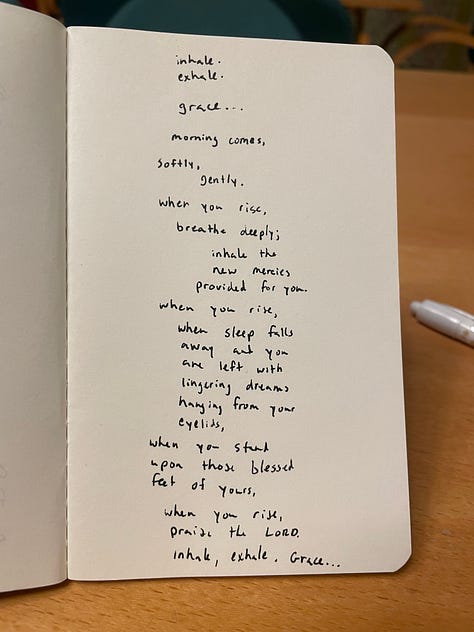 inhale.
exhale.
grace...
morning comes,
softly,
gently.
when you rise,
breathe deeply;
inhale the
new mercies
provided for you.
when you rise,
when sleep falls
away and you
are left with
lingering dreams
hanging from your
eyelids,
when you stand
upon those blessed
feet of yours,
when you rise,
praise the LORD.
inhale, exhale. Grace...